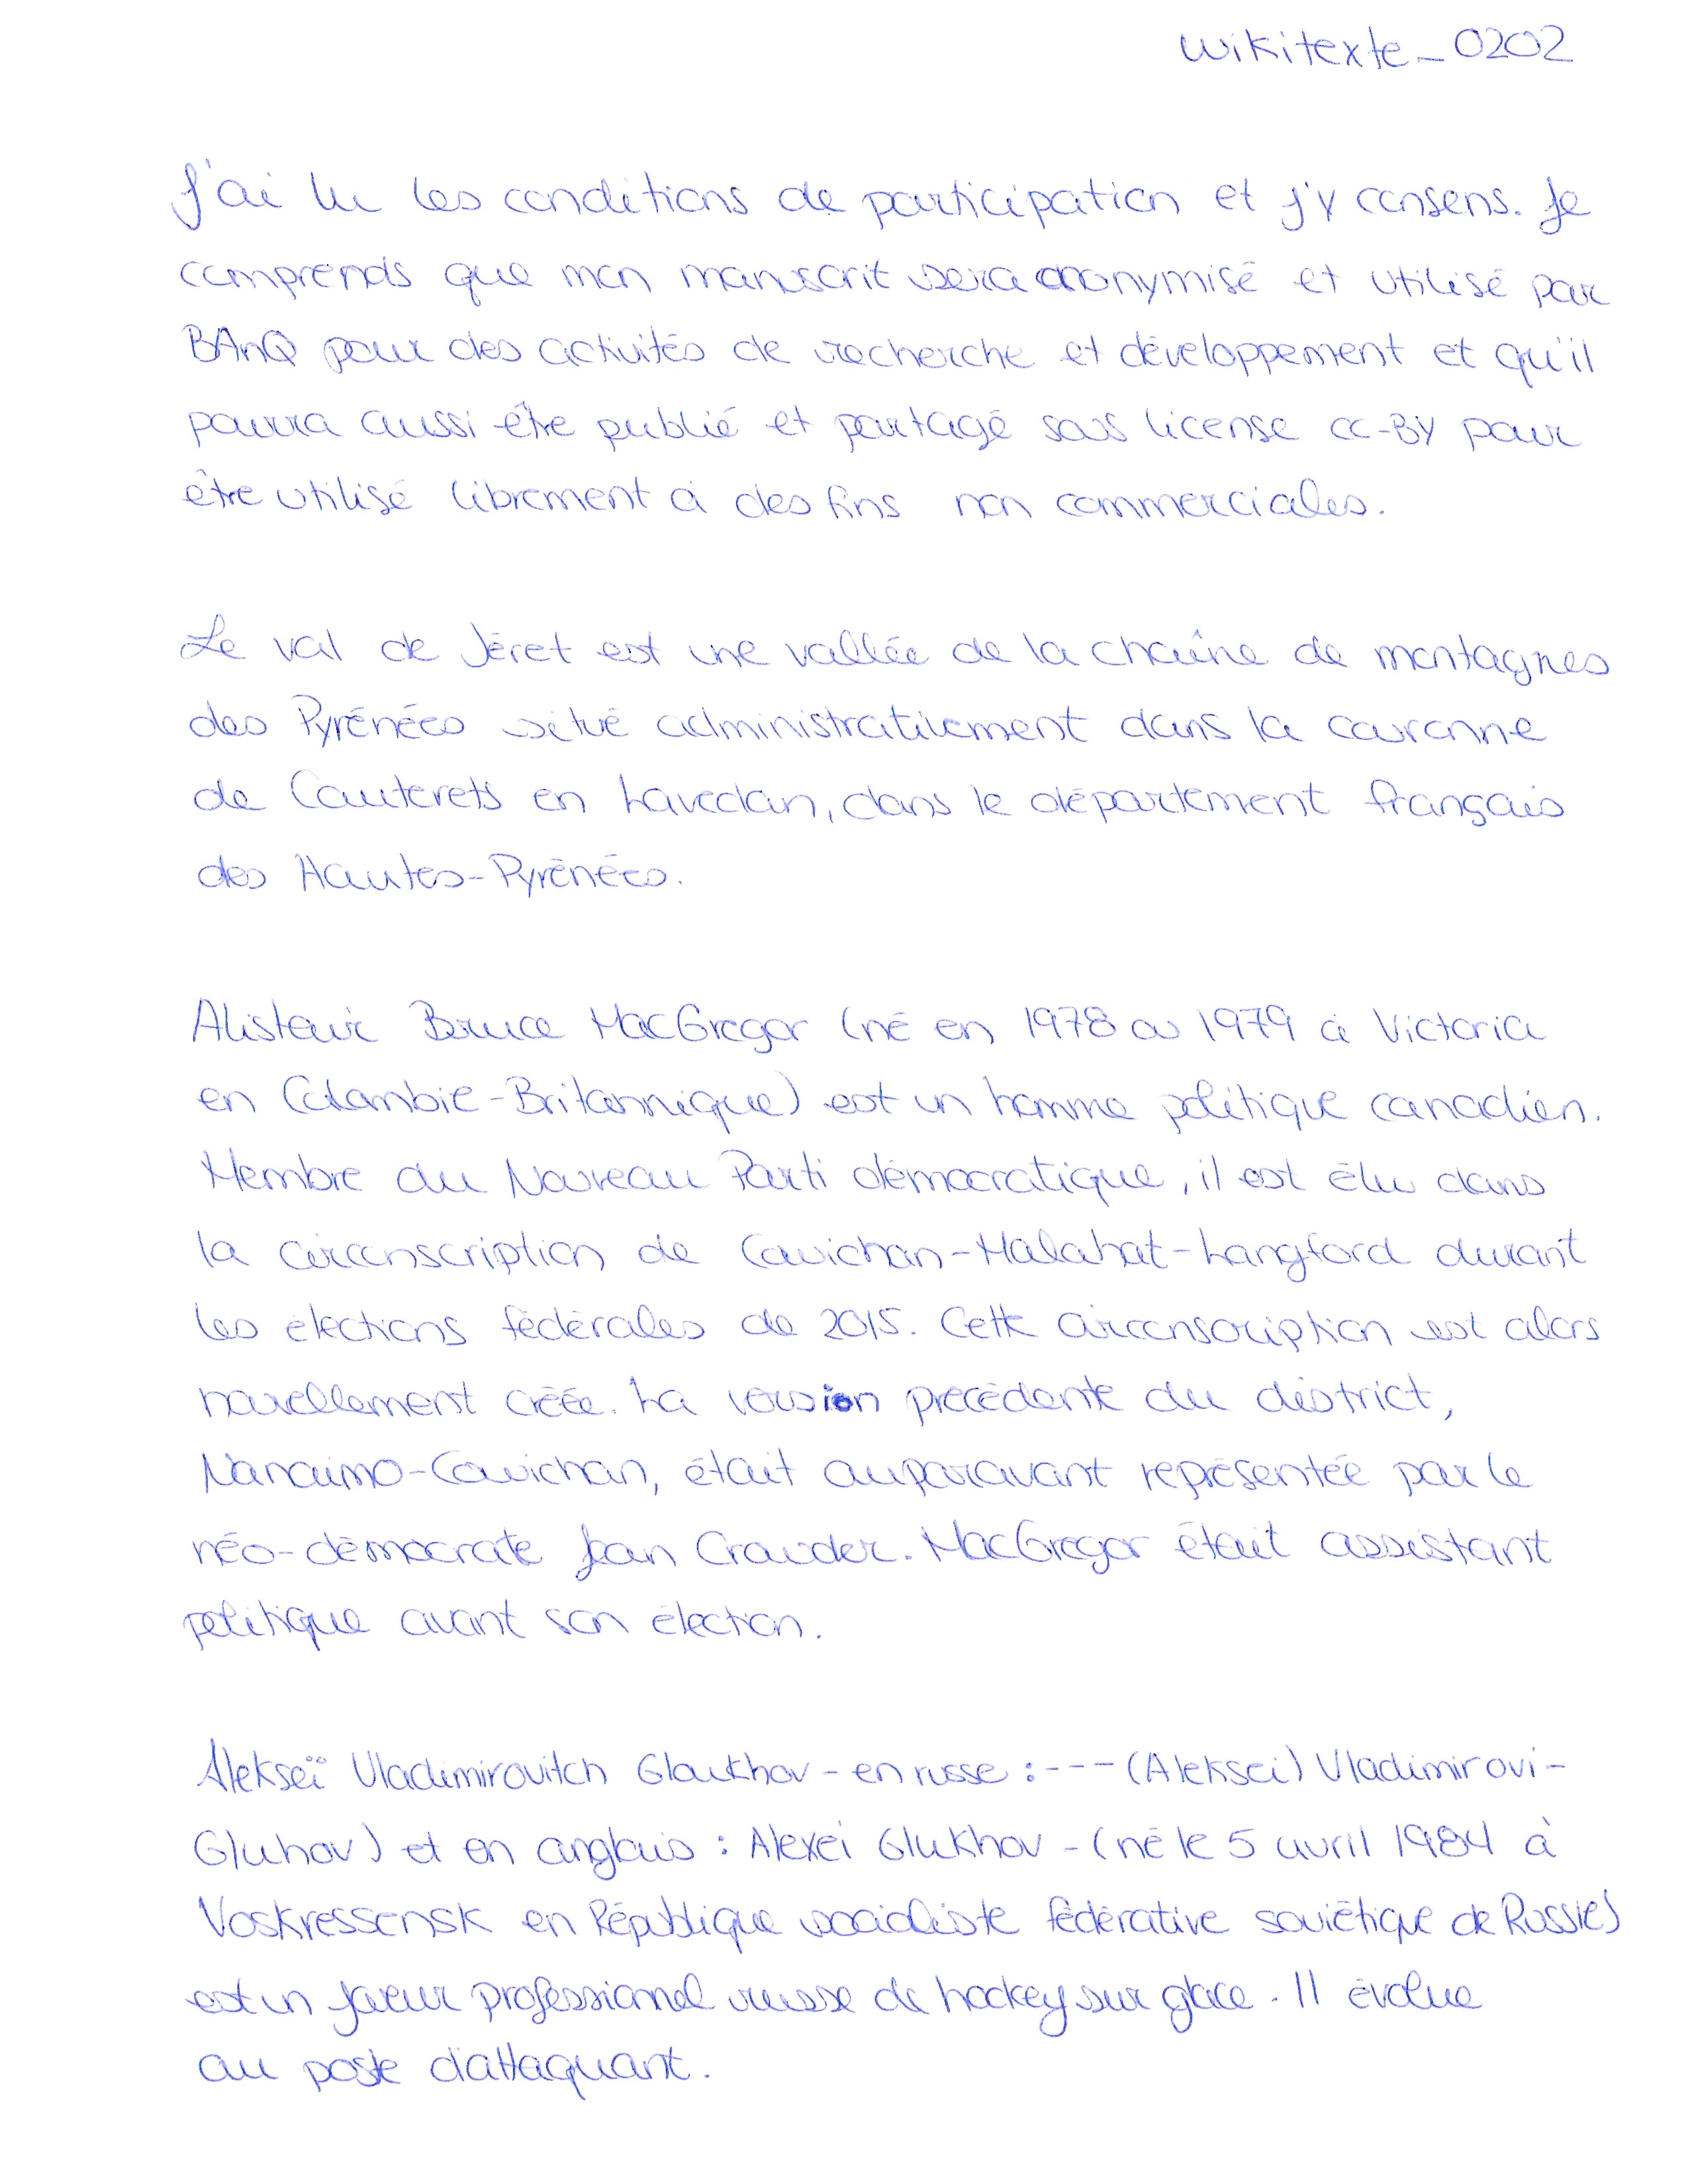 wikitexte_0202
J'ai lu les conditions de participation et j'y consens. Je
comprends que mon manuscrit sera anonymisé et utilisé par
BAnQ pour des activités de recherche et développement et qu'il
pourra aussi être publié et partagé sous license CC-BY pour
être utilisé librement à des fins non commerciales.
Le val de Jéret est une vallée de la chaîne de montagnes
des Pyrénées situé administrativement dans la couronne
de Cauterets en Lavedan, dans le département français
des Hautes-Pyrénées.
Alistair Bruce MacGregor (né en 1978 ou 1979 à Victoria
en Colombie-Britannique) est un homme politique canadien.
Membre du Nouveau Parti démocratique, il est élu dans
la circonscription de Cowichan-Malahat-Langford durant
les élections fédérales de 2015. Cette circonscription est alors
nouvellement créée. La version précédente du district,
Nanaimo-Cowichan, était auparavant représentée par le
néo-démocrate Jean Crowder. MacGregor était assistant
politique avant son élection.
Alekseï Vladimirovitch Gloukhov - en russe : --- (Aleksei) Vladimirovi-
Gluhov) et en anglais : Alexei Glukhov - (né le 5 avril 1984 à
Voskressensk en République socialiste fédérative soviétique de Russie)
est un joueur professionnel russe de hockey sur glace. Il évolue
au poste d'attaquant.